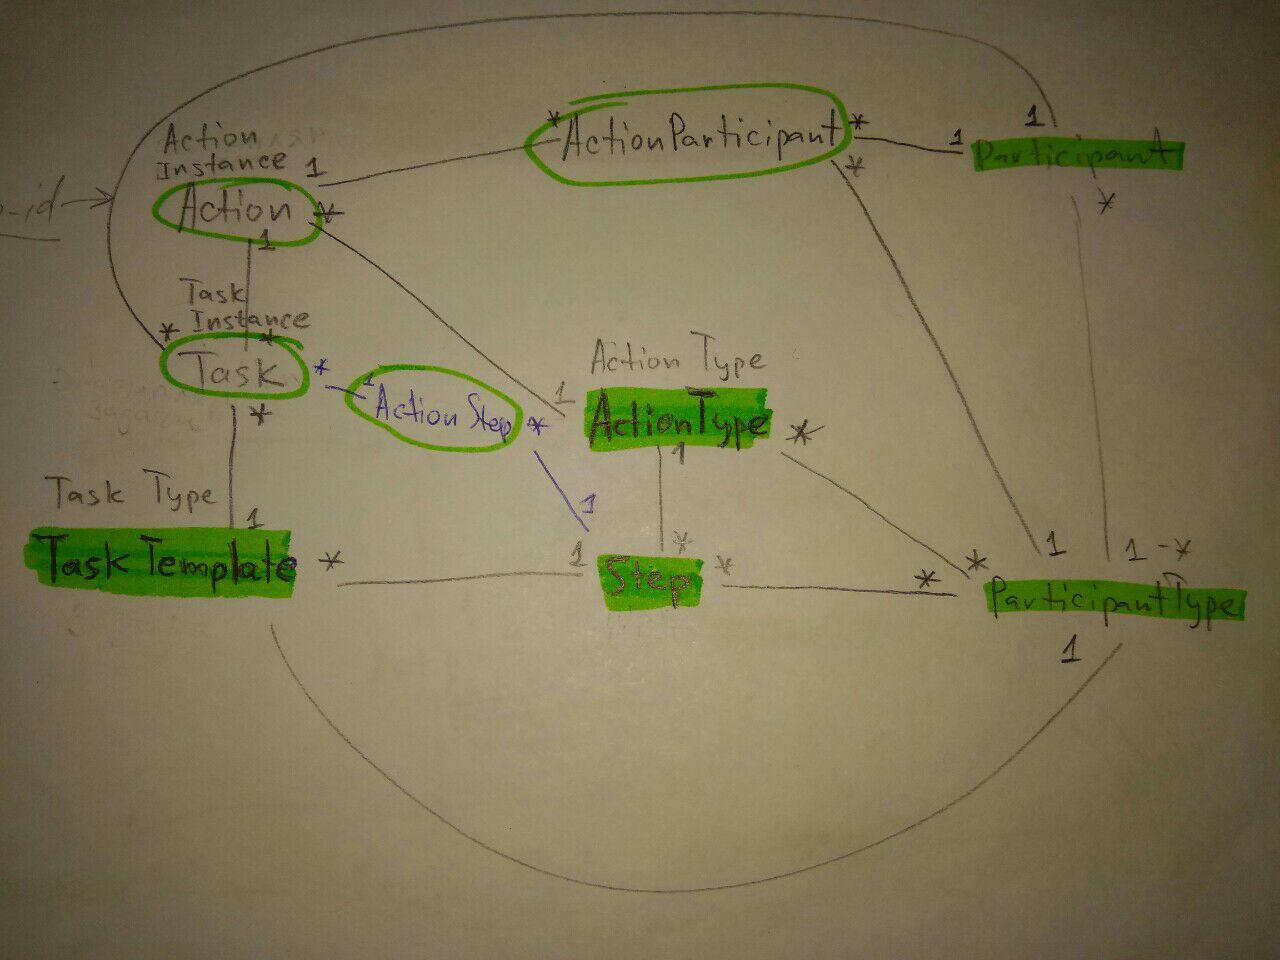 1
Action
Instance
1
*
ActionParticipant
*
1
Participant
*
*
-id
Action
*
1
Task
Instance
*
*
Task
*
1
ActionStep
*
Action Type
1
ActionType
*
1
*
Task Type
1
1
TaskTemplate
*
1
Step
*
*
*
*
1
1-*
ParticipantType
1